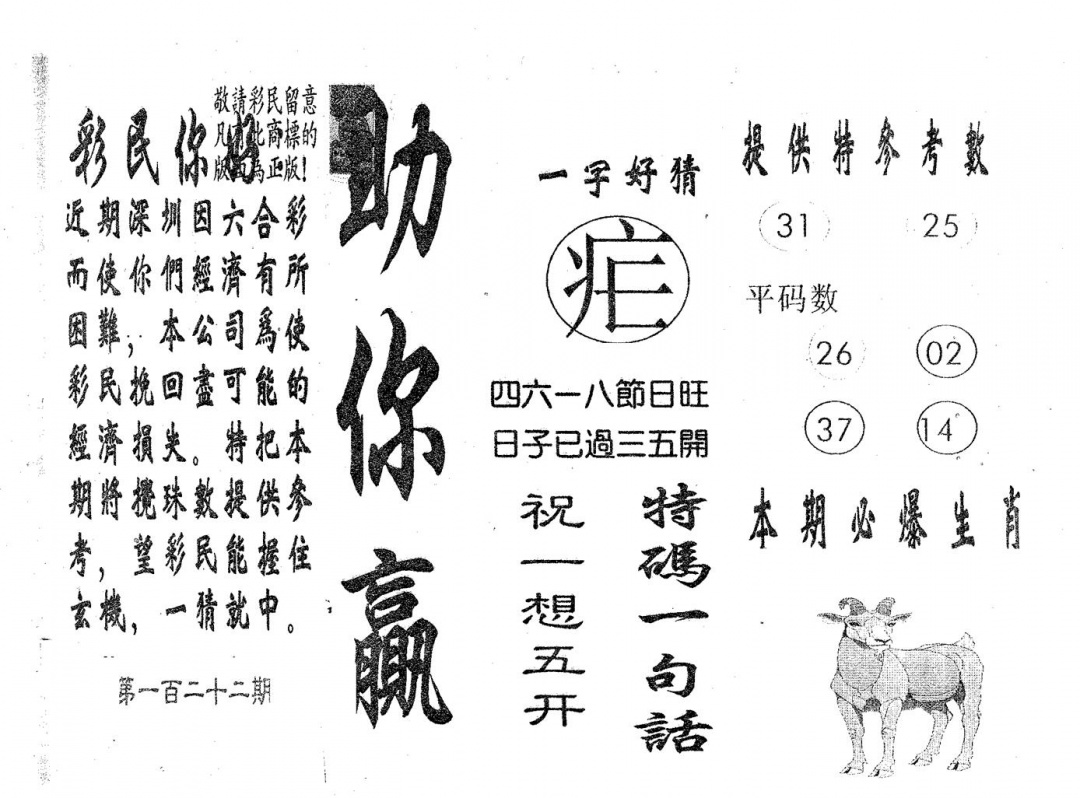 敬請彩民留意
凡有此商標的
版面為正版!
彩民你好
近期深圳因六合彩
而使你們經濟有所
困難，本公司爲使
彩民挽回盡可能的
經濟損失。特把本
期將攪珠數提供參
考，望彩民能握住
玄機，一猜就中。
第一百二十二期
助你贏
一字好猜
疟
四六一八節日旺
日子已過三五開
特碼一句話
祝一想五开
提供特參考數
31 25
平码数
26 02
37 14
本期必爆生肖